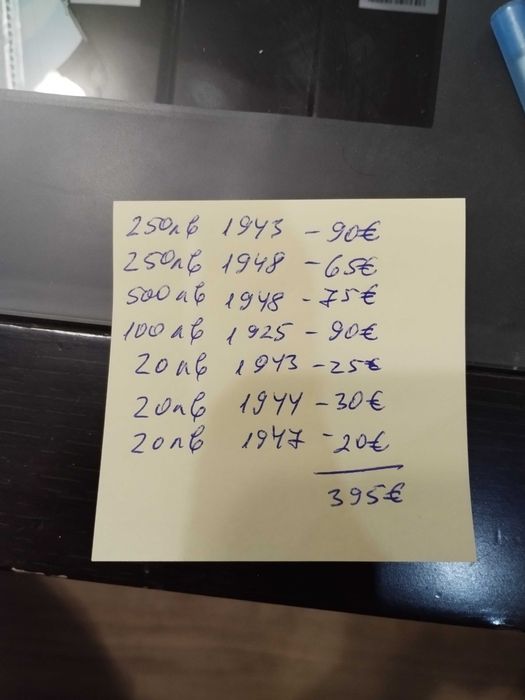 250лв 1943 - 90€
250лв 1948 - 65€
500лв 1948 - 75€
100лв 1925 - 90€
20лв 1943 - 25€
20лв 1944 - 30€
20лв 1947 - 20€
395€